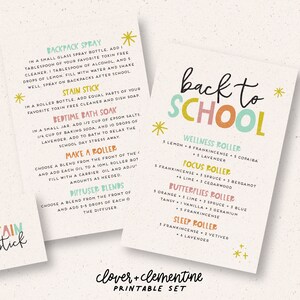 BACKPACK SPRAY
IN A SMALL GLASS SPRAY BOTTLE, ADD 1
TABLESPOON OF YOUR FAVORITE TOXIN FREE
CLEANER, 1 TABLESPOON OF ALCOHOL, AND 5
DROPS OF LEMON. FILL WITH WATER AND SHAKE
WELL. SPRAY ON BACKPACKS AFTER SCHOOL.
STAIN STICK
IN A ROLLER BOTTLE, ADD EQUAL PARTS OF YOUR
FAVORITE TOXIN FREE CLEANER AND DISH SOAP.
BEDTIME BATH SOAK
IN A SMALL JAR, ADD 1/2 CUP OF EPSOM SALTS,
1/4 CUP OF BAKING SODA, AND 10 DROPS OF
LAVENDER. ADD TO BATH TO RELAX THE
SCHOOL DAY STRESS AWAY.
MAKE A ROLLER
CHOOSE A BLEND FROM THE FRONT OF THE
AND ADD EACH OIL TO A 10ML ROLLER BOTTLE
FILL WITH A CARRIER OIL AND
DIFFUSER BLENDS
CHOOSE A BLEND FROM THE FRONT OF
AND ADD 3-5 DROPS OF EACH
THE DIFFUSER
back to
SCHOOL
WELLNESS ROLLER
3 LEMON + 2 FRANKINCENSE + 2 COPAIBA
+ 2 LAVENDER
FOCUS ROLLER
FRANKINCENSE + 3 BERGAMOT
+ 2 CEDARWOOD
BUTTERFLIES ROLLER
ORANGE + 2 LIME + 2 SPRUCE + 2 BLUE
TANSY + VANILLA + 2 GERANIUM
+ FRANKINCENSE
SLEEP ROLLER
FRANKINCENSE + 2 VETIVER
+ LAVENDER
stick
clover + clementine
PRINTABLE SET